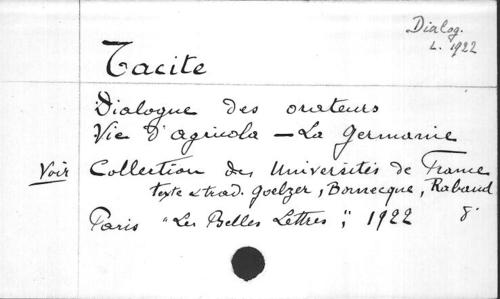 Dialog.
L. 1922
Tacite
Dialogue des orateurs
Vie d'Agricola — La Germanie
Voir Collection des Universités de France
texte & trad. Goelzer, Bornecque, Rabaud
Paris "Les Belles Lettres", 1922 8°